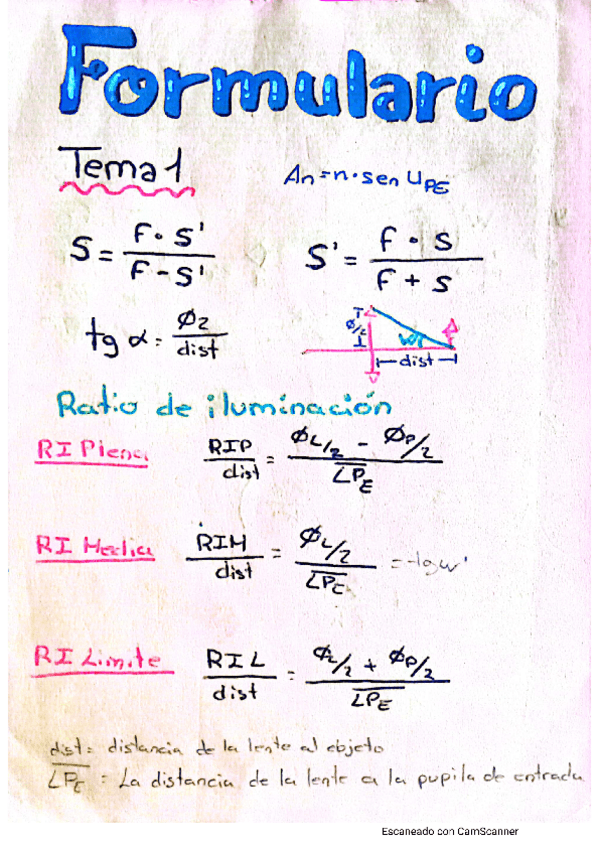 Formulario
Tema 1
An = n · sen U_PE
S = (F · S') / (F - S')
S' = (F · S) / (F + S)
tg α = Ø2 / dist
Ø/2
W
dist
Ratio de iluminación
RI Plena
RIP / dist = (ØL/2 - ØP/2) / LP_E
RI Media
RIM / dist = (ØL/2) / LP_E = -tg w'
RI Limite
RIL / dist = (ØL/2 + ØP/2) / LP_E
dist = distancia de la lente al objeto
LP_E : La distancia de la lente a la pupila de entrada
Escaneado con CamScanner